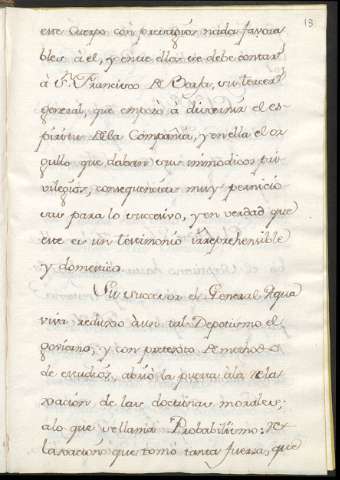 13
este Cuerpo con presagios nada favora
bles à él, y entre ellos se debe contar
à S.n Francisco de Borja, su tercer
general, que empezò à discernir el es-
piritu de la Compañia, y en ella el or
gullo que daban sus inmodicos pri
vilegios, consequencias muy pernicio
sas para lo succesivo, y en verdad que
este es un testimonio irreprehensible
y domestico.
Su succesor el General Aqua
viva reduxo à un tal Depotismo el
govierno, y con pretexto de methodo
de estudios, abriò la puerta à la rela
xacion de las doctrinas morales,
a lo que se llama Probabilismo: re
laxacion que tomò tanta fuerza, que